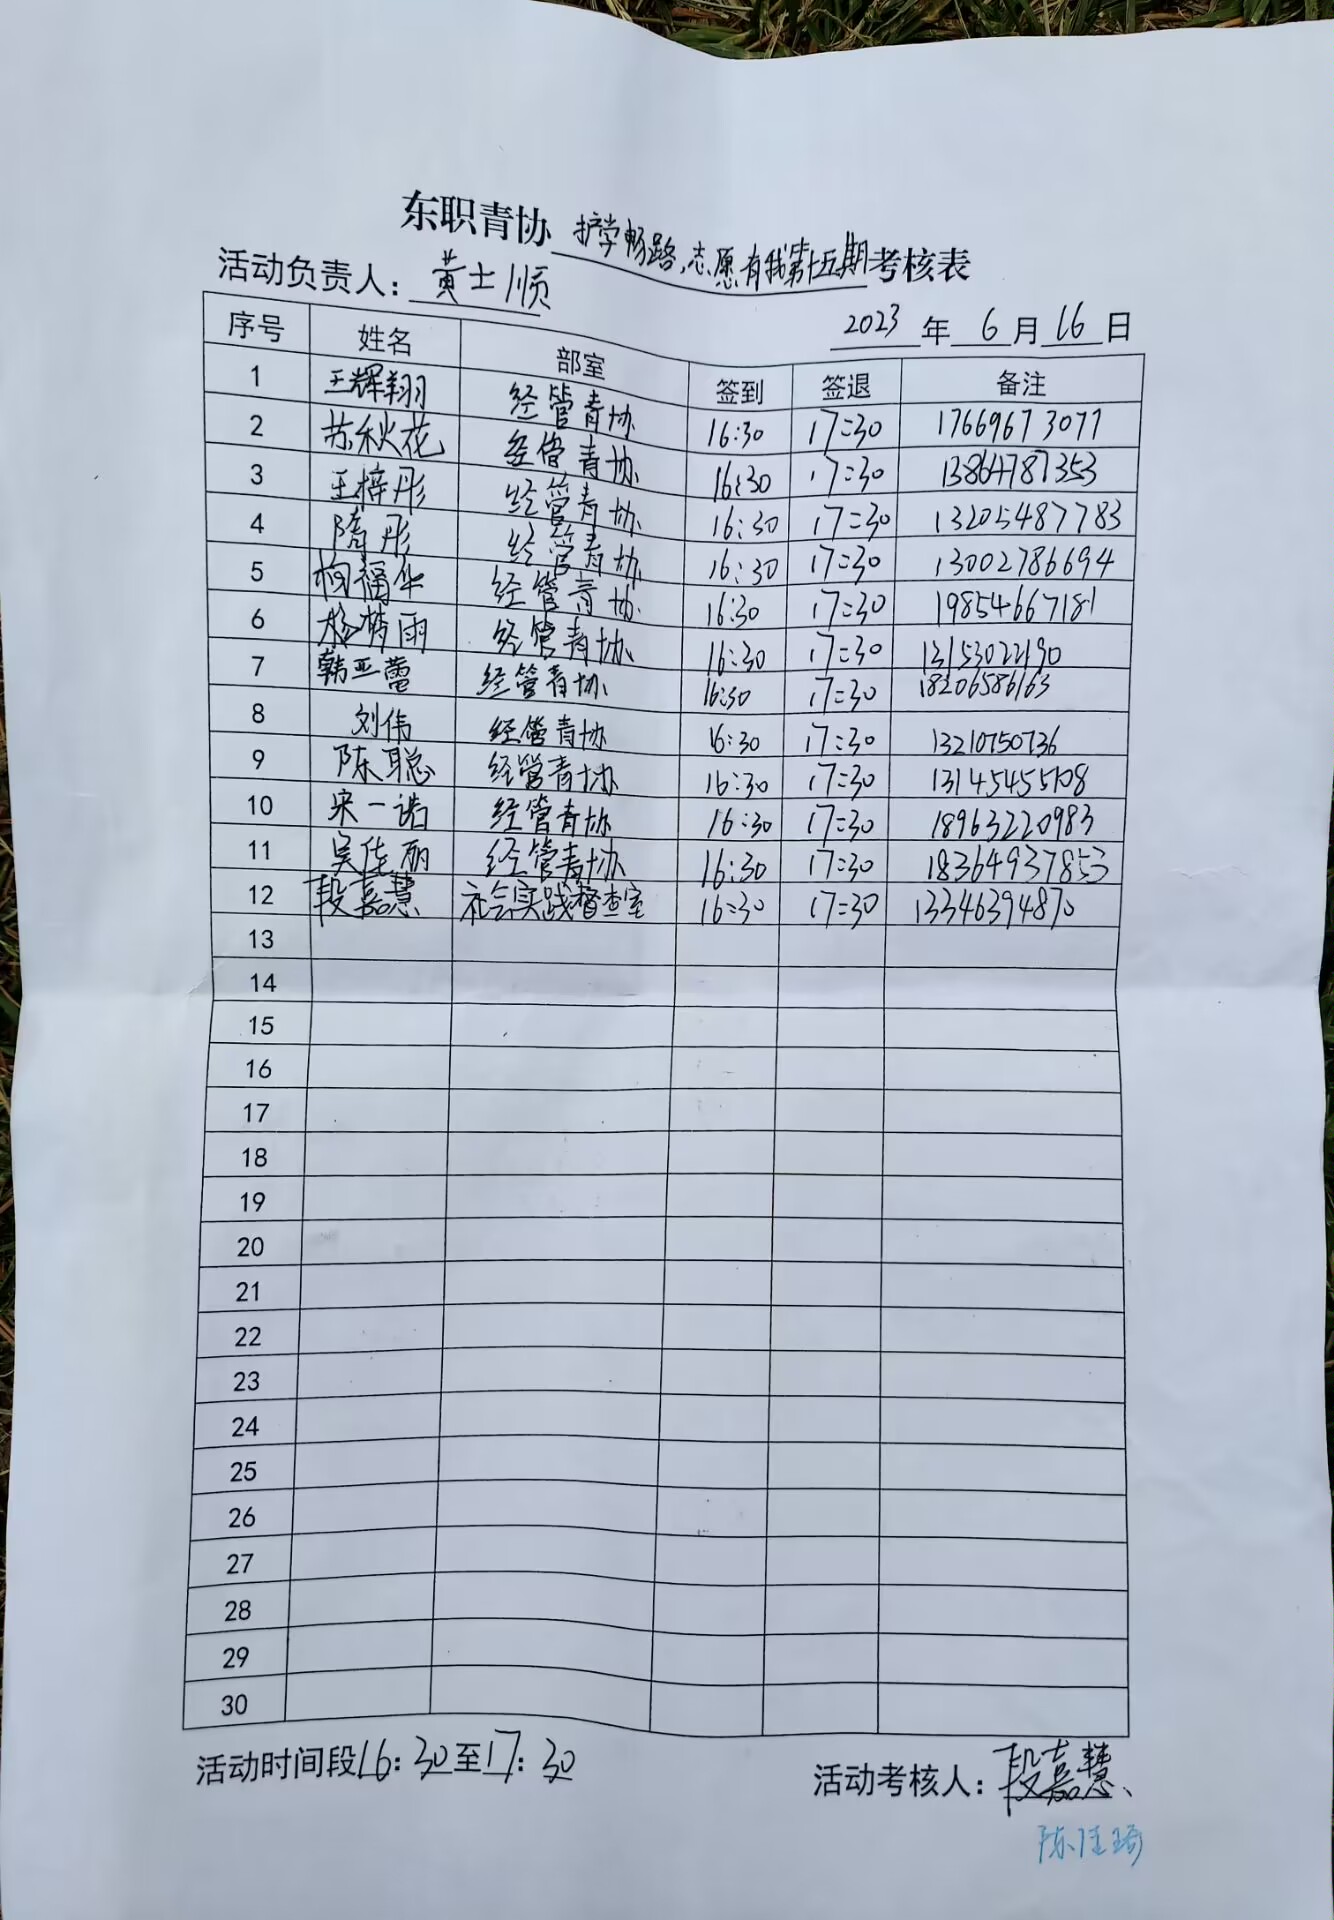 东职青协 护学畅路,志愿有我第十五期 考核表
活动负责人: 黄士顺
2023 年 6 月 16 日
序号 姓名 部室 签到 签退 备注
1 王辉翔 经管青协 16:30 17:30 17669673077
2 苏秋花 经管青协 16:30 17:30 13864787353
3 王梓彤 经管青协 16:30 17:30 13205487783
4 隋彤 经管青协 16:30 17:30 13002786694
5 福华 经管青协 16:30 17:30 19854667181
6 杨梦雨 经管青协 16:30 17:30 13153022190
7 韩亚蕾 经管青协 16:30 17:30 18206586163
8 刘伟 经管青协 16:30 17:30 13210750736
9 陈聪 经管青协 16:30 17:30
10 宋一诺 经管青协 16:30 17:30 18963220983
11 吴佳丽 经管青协 16:30 17:30 18364937853
12 段嘉慧 社会实践督查室 16:30 17:30 13346394870
13
14
15
16
17
18
19
20
21
22
23
24
25
26
27
28
29
30
活动时间段16:30至17:30
活动考核人: 段嘉慧、
陈佳琦